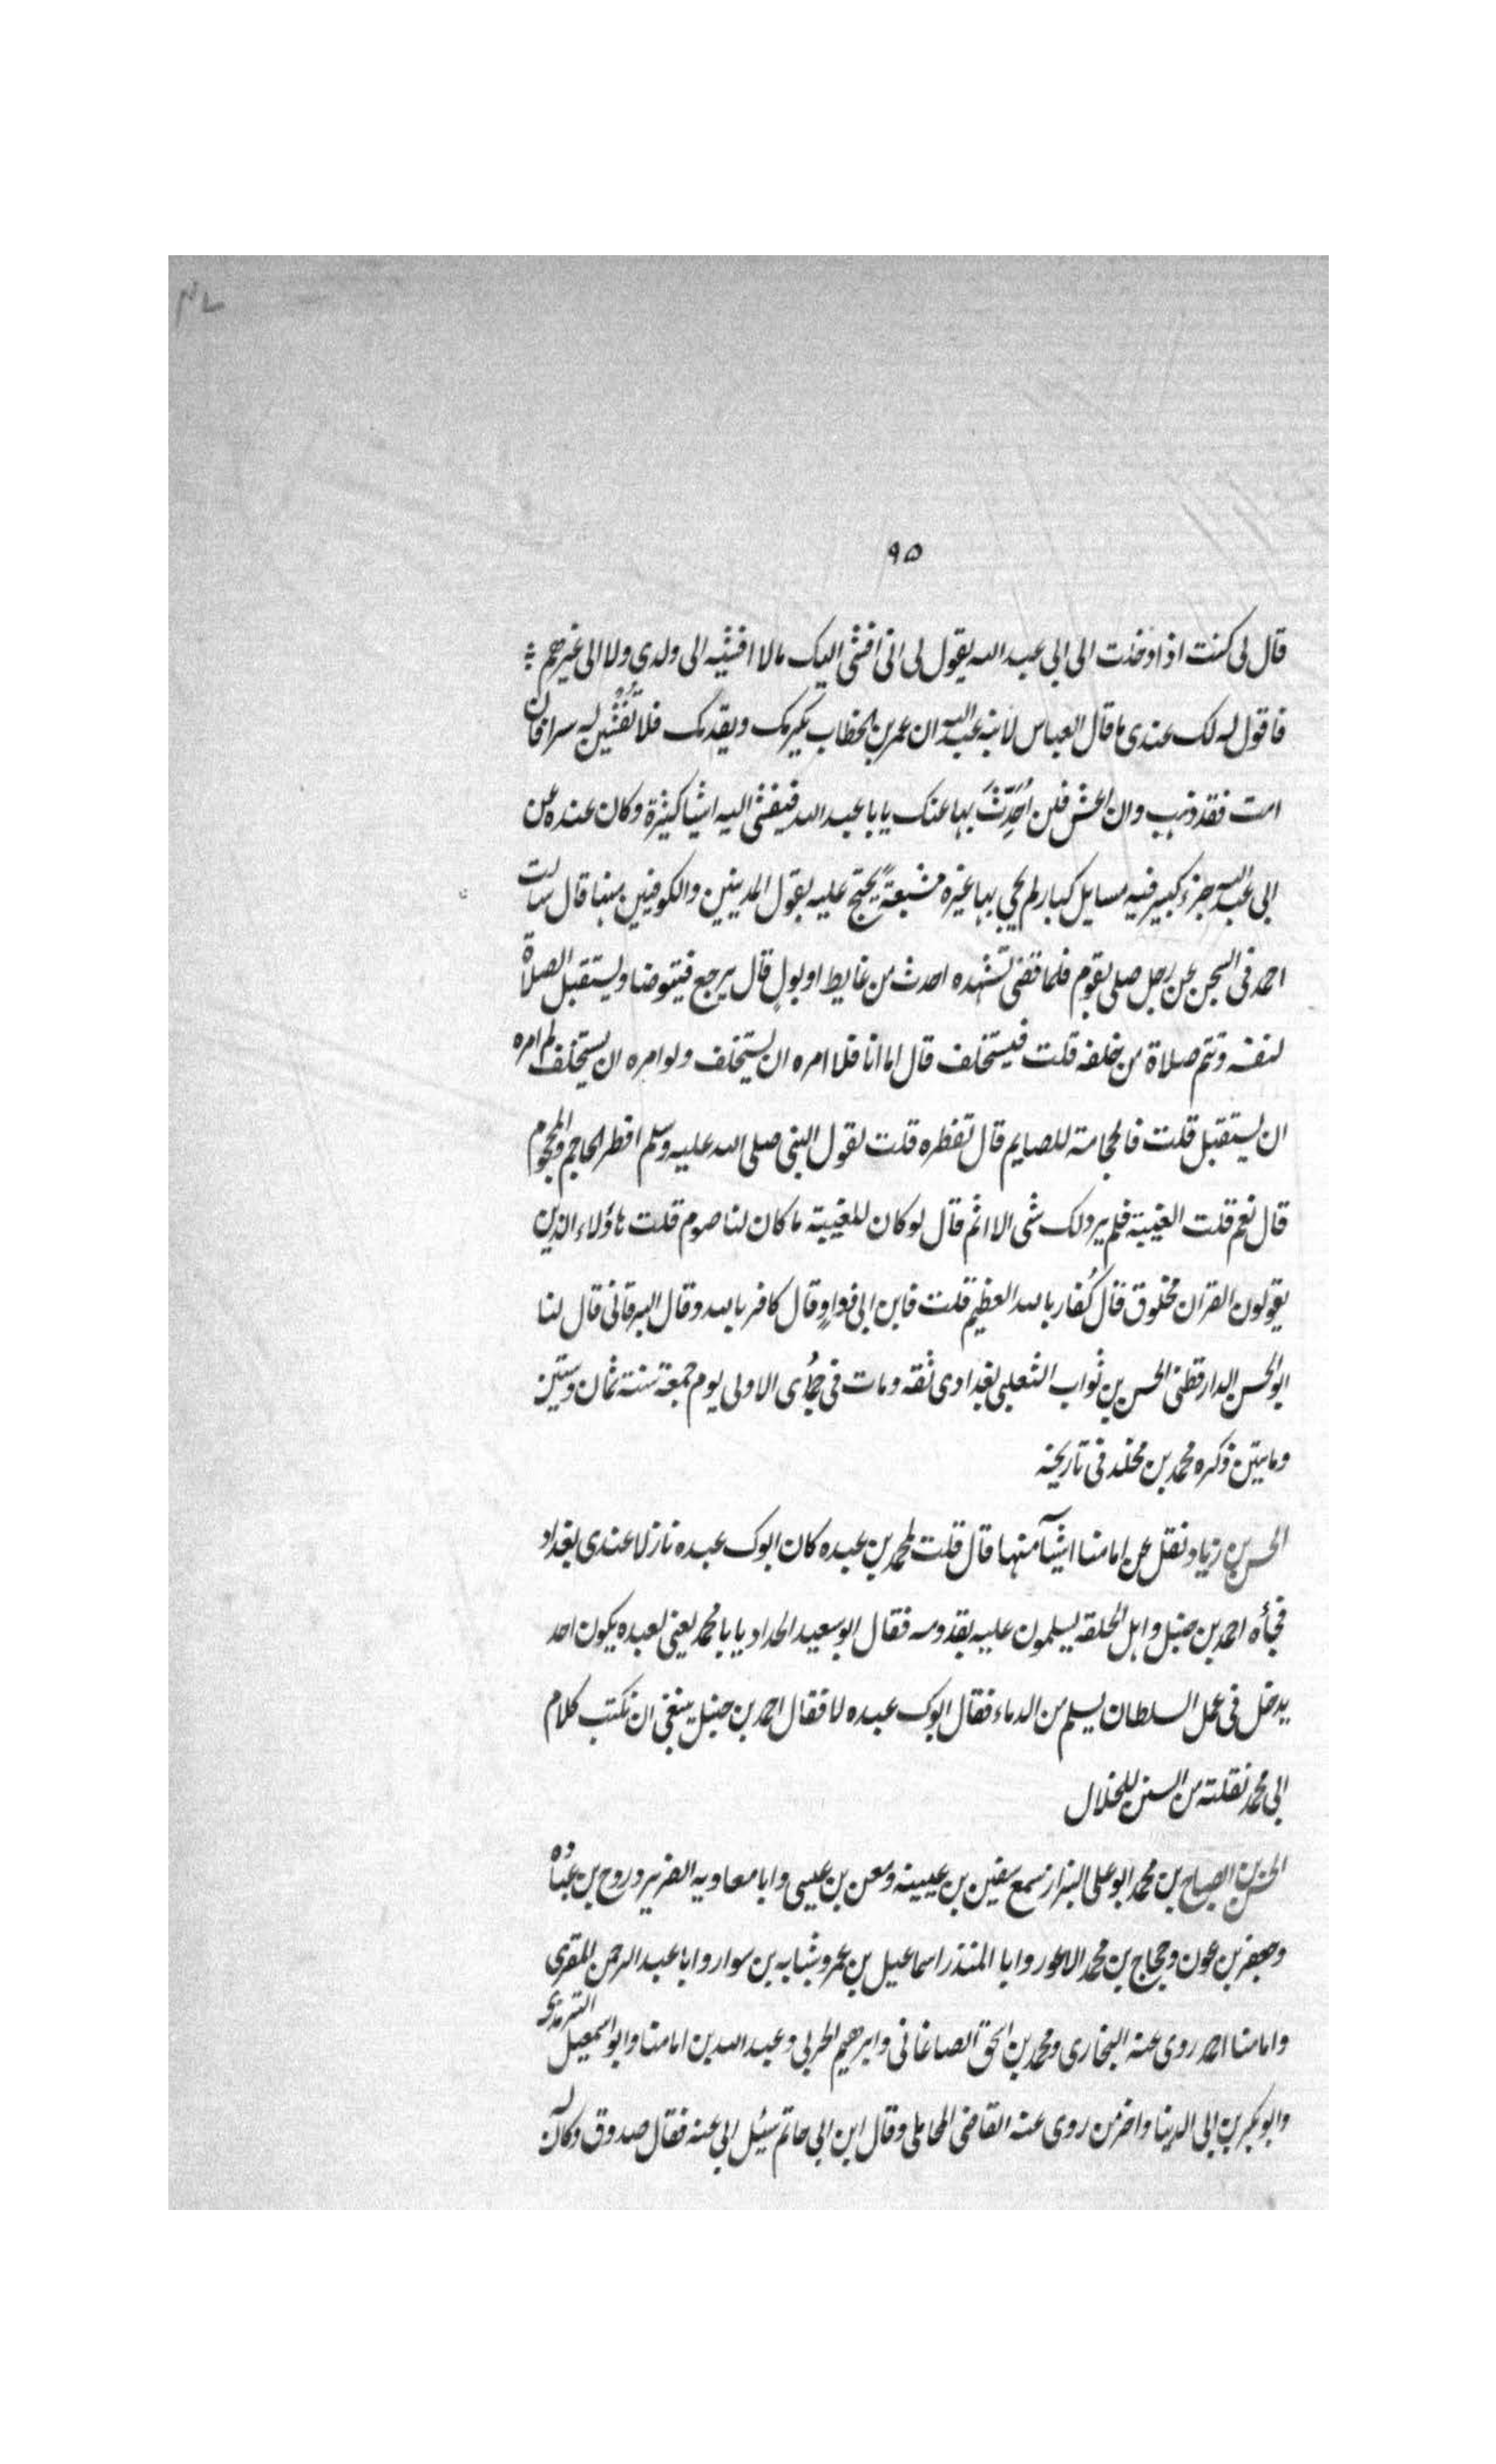 ٩٥
قال لى كنت اذا دخلت الى ابى عبد الله يقول لى انى افشى اليك مالا افشيه الى ولدى ولا الى غيرهم
فاقول له لك عندى ما قال العباس لابنه عبد الله ان عمر بن الخطاب يكرمك ويقدمك فلا تفشين له سرا فان
امت فقد ذهب وان اعش فلن اُحَدِّثَ بها عنك يابا عبد الله فيفشى اليه اشيا كثيرة وكان عنده عن
ابى عبد الله جزء كبير فيه مسايل كبار لم يجى بها غيره مشبعة يحتج عليه بقول المدينين والكوفين منها قال سالت
احمد فى السجن عن رجل صلى بقوم فلما قضى تشهده احدث من غايط او بول قال يرجع فيتوضا ويستقبل الصلاة
لنفسه وتتم صلاة من خلفه قلت فيستخلف قال اما انا فلا امره ان يستخلف ولو امره ان يستخلف لم امره
ان يستقبل قلت فالحجامة للصايم قال تفطره قلت لقول النبى صلى الله عليه وسلم افطر الحاجم والمحجوم
قال نعم قلت الغيبة فلم ير ذلك شى الا اثم قال لو كان للغيبة ما كان لنا صوم قلت هاؤلاء الذين
يقولون القران مخلوق قال كُفار بالله العظيم قلت فابن ابى دواد قال كافر بالله وقال البرقانى قال لنا
ابو الحسن الدارقطنى الحسن بن ثواب الثعلبى بغدادى ثقه ومات فى جمُادى الاولى يوم جمعة سنة ثمان وستين
ومايتين ذكره محمد بن مخلد فى تاريخه
الحسن بن زياد نقل عن امامنا اشيآ منها قال قلت لمحمد بن عبده كان ابوك عبده نازلا عندى بغداد
فجأه احمد بن حنبل واهل الحلقة يسلمون عليه بقدومه فقال ابو سعيد الحداد يا با محمد يعنى لعبده يكون احد
يدخل فى عمل السلطان يسلم من الدماء فقال ابوك عبده لا فقال احمد بن حنبل ينبغى ان نكتب كلام
ابى محمد نقلته من السنن للخلال
الحسن بن الصباح بن محمد ابو على البزار سمع سفين بن عيينه ومعن بن عيسى وابا معاويه الضرير وروح بن عباده
وجعفر بن عون وحجاج بن محمد الاعور وابا المنذر اسماعيل بن عمر وشبابه بن سوار وابا عبد الرحمن المقرى
وامامنا احمد روى عنه البخارى ومحمد بن اسحق الصاغانى وابرهيم الحربى وعبد الله بن امامنا وابو اسمعيل الترمذى
وابو بكر بن ابى الدنيا واخر من روى عنه القاضى المحاملى وقال ابن ابى حاتم سيئل ابى عنه فقال صدوق وكان له